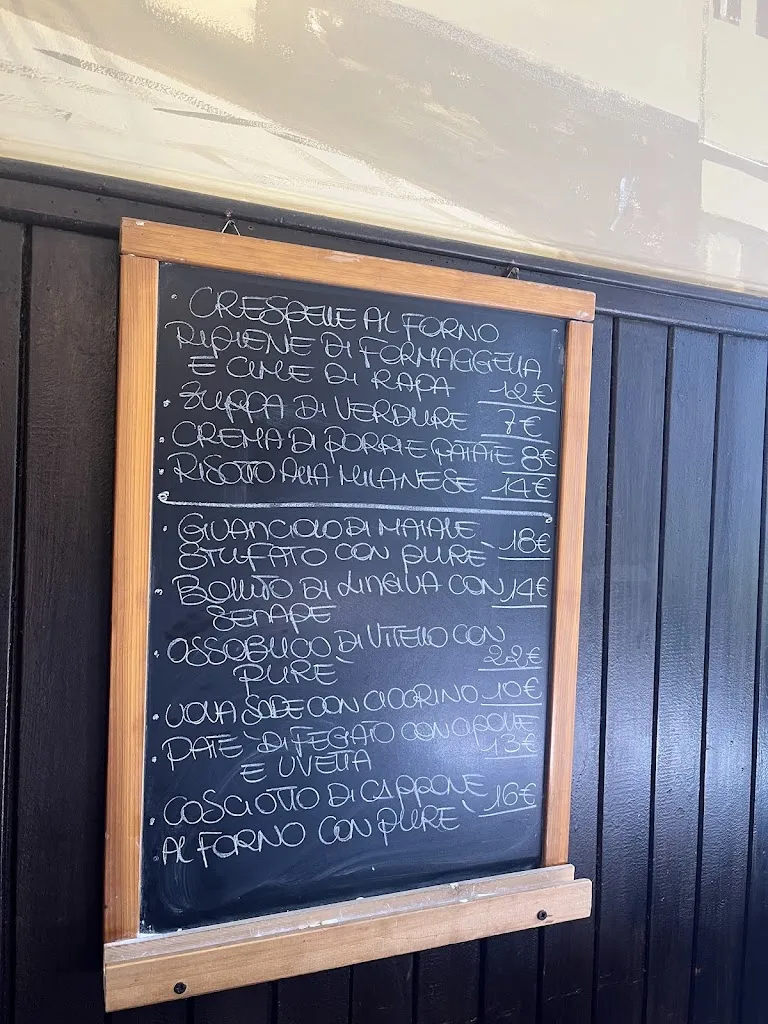 • CRESPELLE AL FORNO
RIPIENE DI FORMAGGELLA
E CIME DI RAPA 12€
• ZUPPA DI VERDURE 7€
• CREMA DI PORRI E PATATE 8€
• RISOTTO ALLA MILANESE 14€
• GUANCIOLO DI MAIALE
STUFATO CON PURÈ 18€
• BOLLITO DI LINGUA CON 14€
SENAPE
• OSSOBUCO DI VITELLO CON
PURÈ 22€
• UOVA SODE CON CICORINO 10€
• PATÈ DI FEGATO CON CIPOLLE
E UVETTA 13€
• COSCIOTTO DI CAPPONE 16€
AL FORNO CON PURÈ